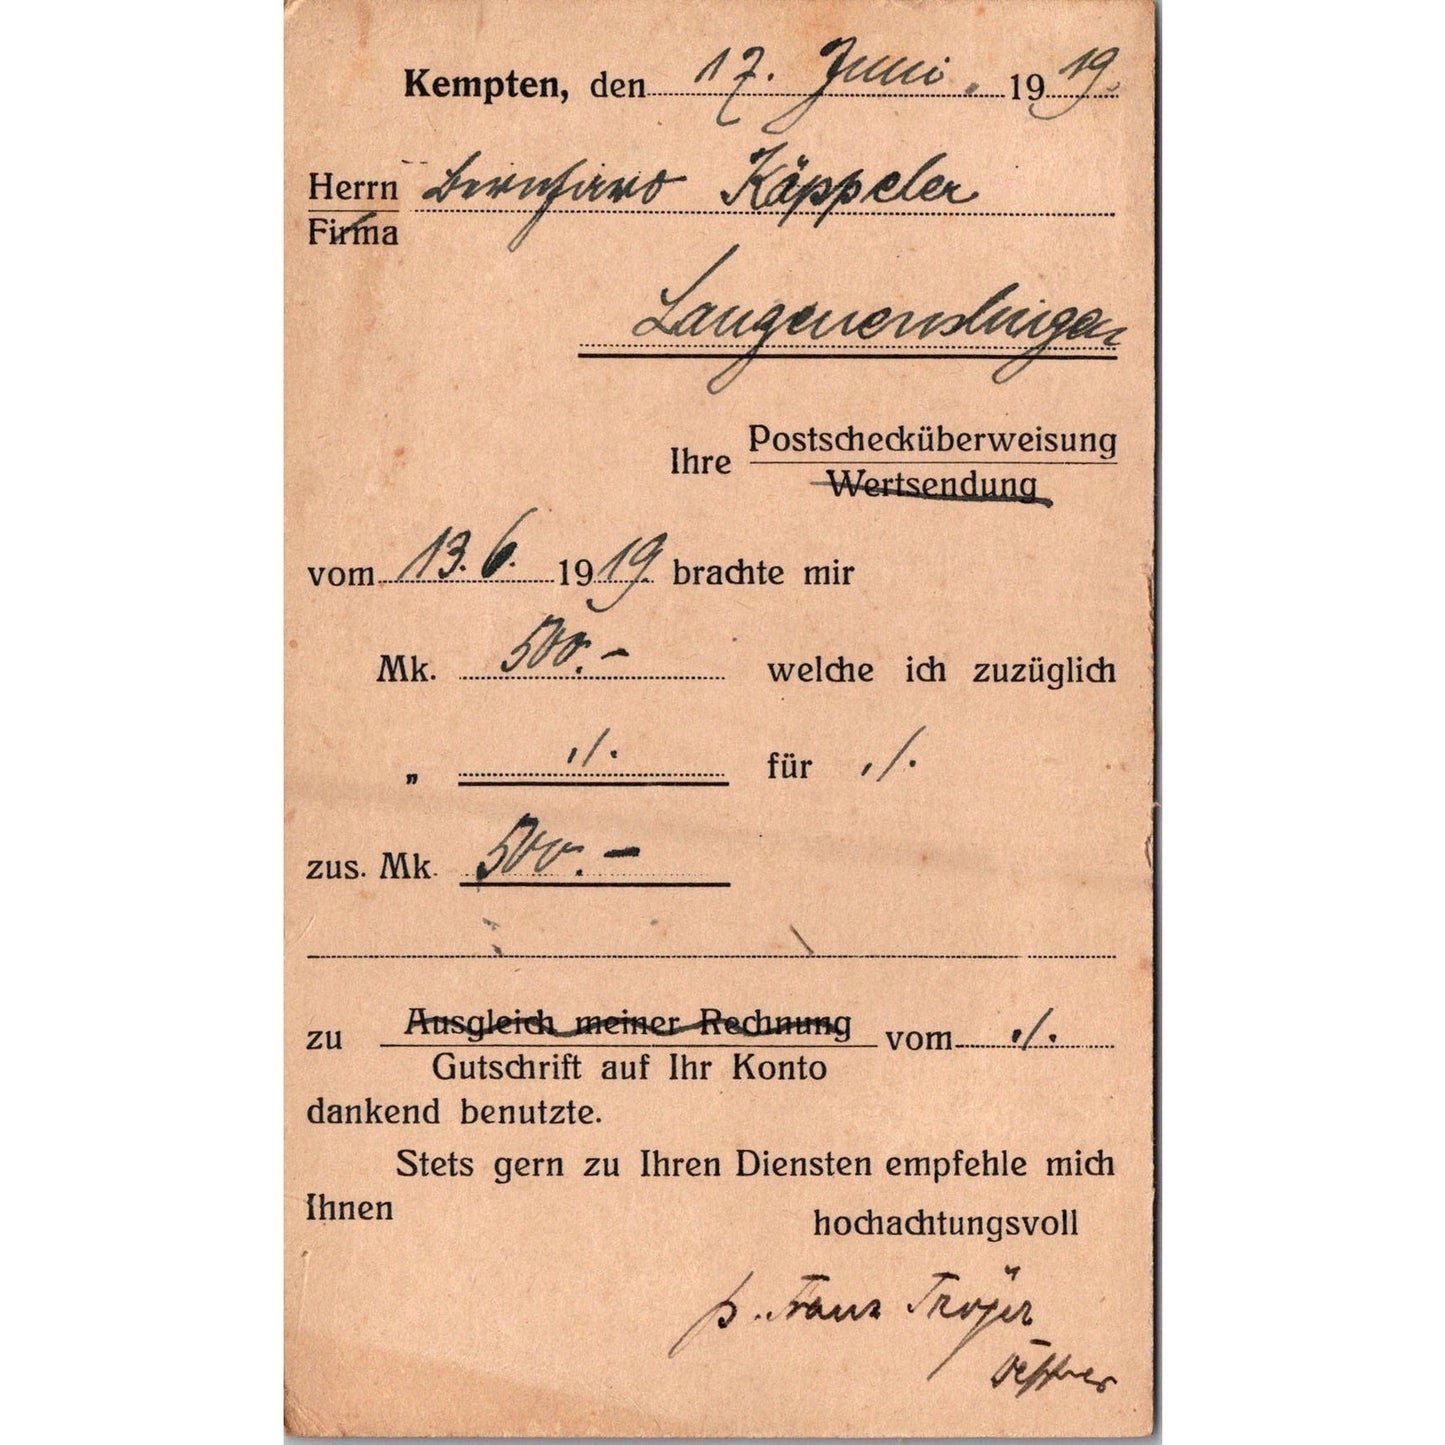 Kempten, den 17. Juni 1919.
Herrn Bernhard Käppeler
Firma
Langenenslingen
Ihre Postschecküberweisung
Wertsendung
vom 13. 6. 1919 brachte mir
Mk. 500.- welche ich zuzüglich
„ ./. für ./.
zus. Mk. 500.-
zu Ausgleich meiner Rechnung vom ./.
Gutschrift auf Ihr Konto
dankend benutzte.
Stets gern zu Ihren Diensten empfehle mich
Ihnen
hochachtungsvoll
p. Franz Tröjer